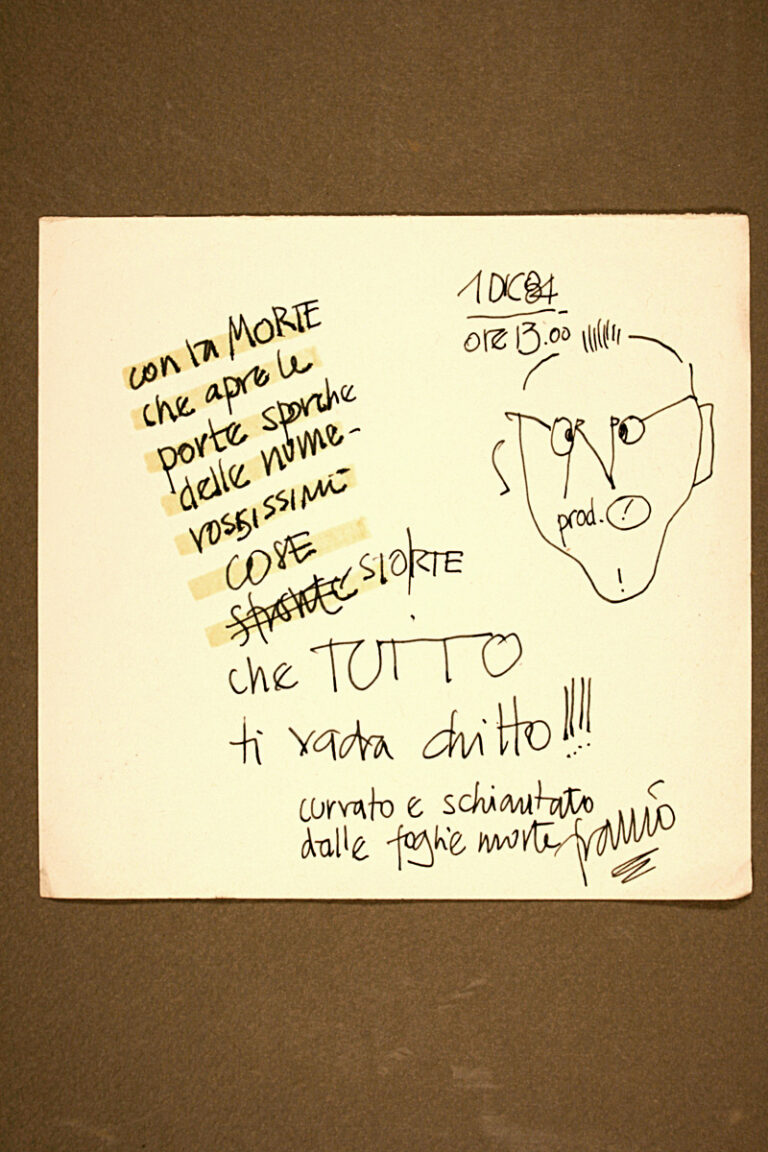 1 DIC 84
ore 13.00
con la MORTE
che apre le
porte sporche
delle nume-
rosissime
COSE
STORTE
che TUTTO
ti vada dritto!!!!
prod. !
!
curvato e schiantato
dalle foglie morte